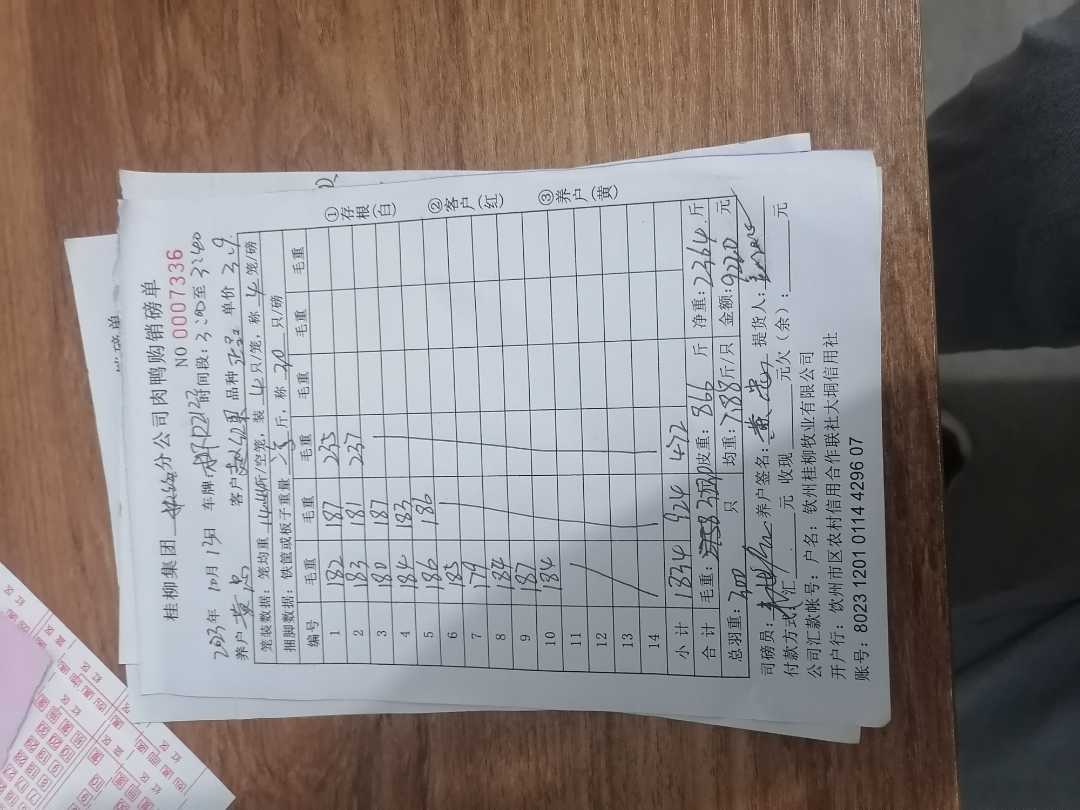 桂柳集团 分公司肉鸭购销磅单
NO 0007336
2023年 10月 12日 车牌: 时间段: 3:00至3:40
养户 黄忠 客户 品种 单价 3.9
笼装数据: 笼均重 斤/空笼, 装 4 只/笼, 称 4 笼/磅
捆脚数据: 铁筐或板子重量 斤, 称 20 只/磅
编号 毛重 毛重 毛重 毛重 毛重
1 182 187 235
2 183 181 237
3 180 187
4 184 183
5 186 186
6 185
7 179
8 184
9 187
10 184
11
12
13
14
小计 1834 924 472
合计 毛重: 3230 皮重: 866 斤 净重: 2364 斤
总羽重: 300 只 均重: 7.88 斤/只 金额: 9220 元
司磅员: 养户签名: 黄忠 提货人:
付款方式: 汇 元 收现 元欠(余): 元
公司汇款帐号: 户名: 钦州桂柳牧业有限公司
开户行: 钦州市区农村信用合作联社大垌信用社
账号: 8023 1201 0114 4296 07
①存根(白)
②客户(红)
③养户(黄)